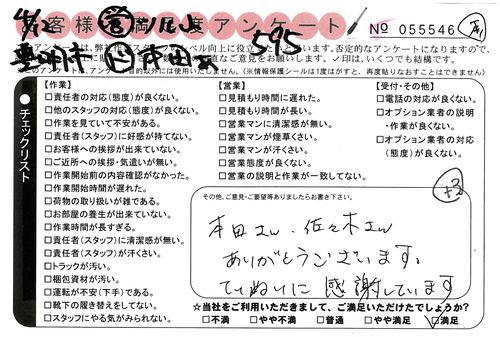 お客様満足度アンケート
№ 055546
595
本アンケートは、弊社作業スタッフのレベル向上に役立てたいと思います。否定的なアンケートになりますので、
直なご意見をお願いします。✓印は、いくつでも結構です。
※このアンケートは、アンケート目的以外には使用いたしません。(※情報保護シールは1度はがすと、再度貼りなおすことはできません)
豊明市 本田
●チェックリスト
【作業】
□責任者の対応(態度)が良くない。
□他のスタッフの対応(態度)が良くない。
□作業を見ていて不安がある。
□責任者(スタッフ)に好感が持てない。
□お客様への挨拶が出来ていない。
□ご近所への挨拶・気遣いが無い。
□作業開始前の内容確認がなかった。
□作業開始時間が遅れた。
□荷物の取り扱いが雑である。
□お部屋の養生が出来ていない。
□作業時間が長すぎる。
□責任者(スタッフ)に清潔感が無い。
□責任者(スタッフ)が汗くさい。
□トラックが汚い。
□梱包資材が汚い。
□運転が不安(下手)である。
□靴下の履き替えをしてない。
□スタッフにやる気がみられない。
【営業】
□見積もり時間に遅れた。
□見積もり時間が長い。
□営業マンに清潔感が無い。
□営業マンが煙草くさい。
□営業マンが汗くさい。
□営業態度が良くない。
□営業の説明と作業が一致してない。
【受付・その他】
□電話の対応が良くない。
□オプション業者の説明
・作業が良くない。
□オプション業者の対応
(態度)が良くない。
+3
その他、ご意見・ご要望等ありましたらお書き下さい。
本田さん、佐々木さん
ありがとうございます。
ていねいに感謝しています
☆当社をご利用いただきまして、ご満足いただけたでしょうか?
□不満 □やや不満 □普通 □やや満足 ☑満足